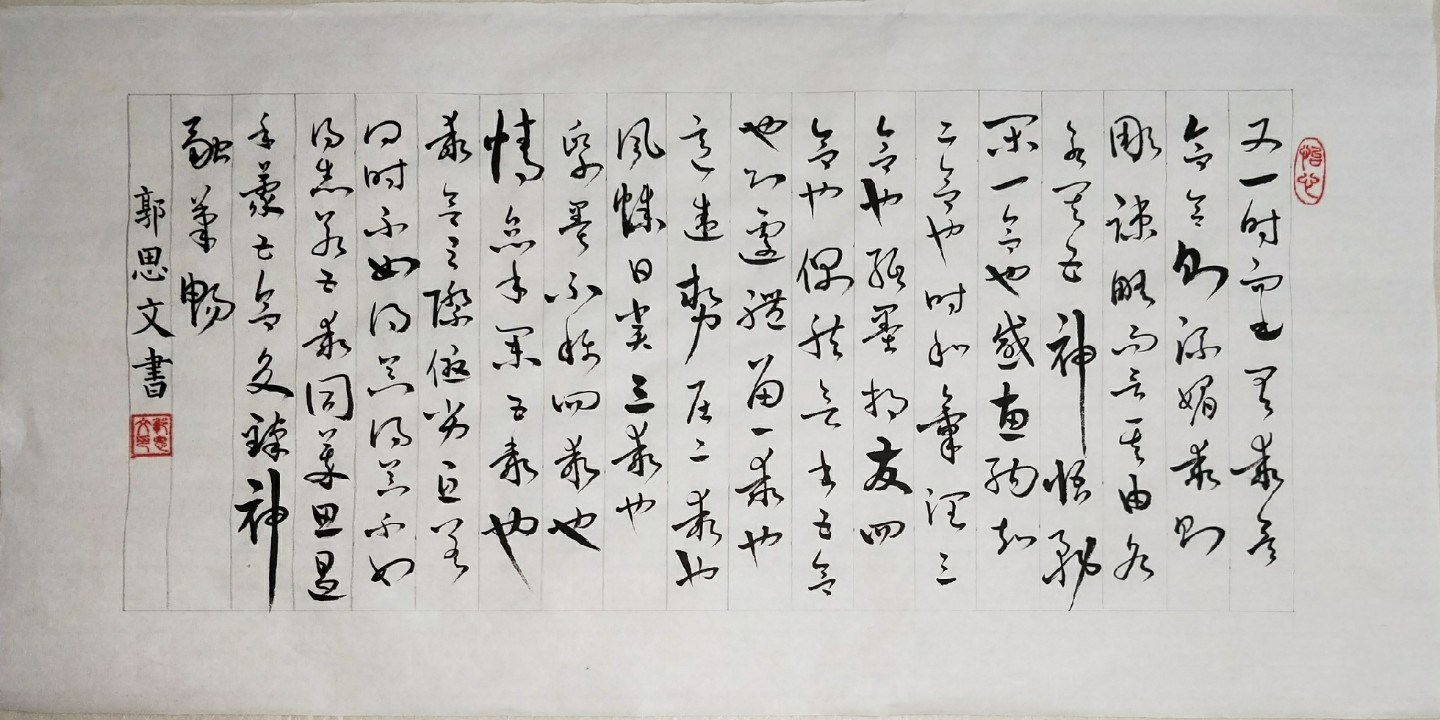 又一時而書有乖有
合合則流媚乖則
彫疎略而言其由各
有其五神怡務
閑一合也感惠徇知
二合也時和氣潤三
合也紙墨相發四
合也偶然欲書五合
也心遽體留一乖也
意違勢屈二乖也
風燥日炎三乖也
紙墨不稱四乖也
情怠手闌五乖也
乖合之際優劣互差
得時不如得器得器不如
得志若五乖同萃思遏
手蒙五合交臻神
融筆暢
郭思文書